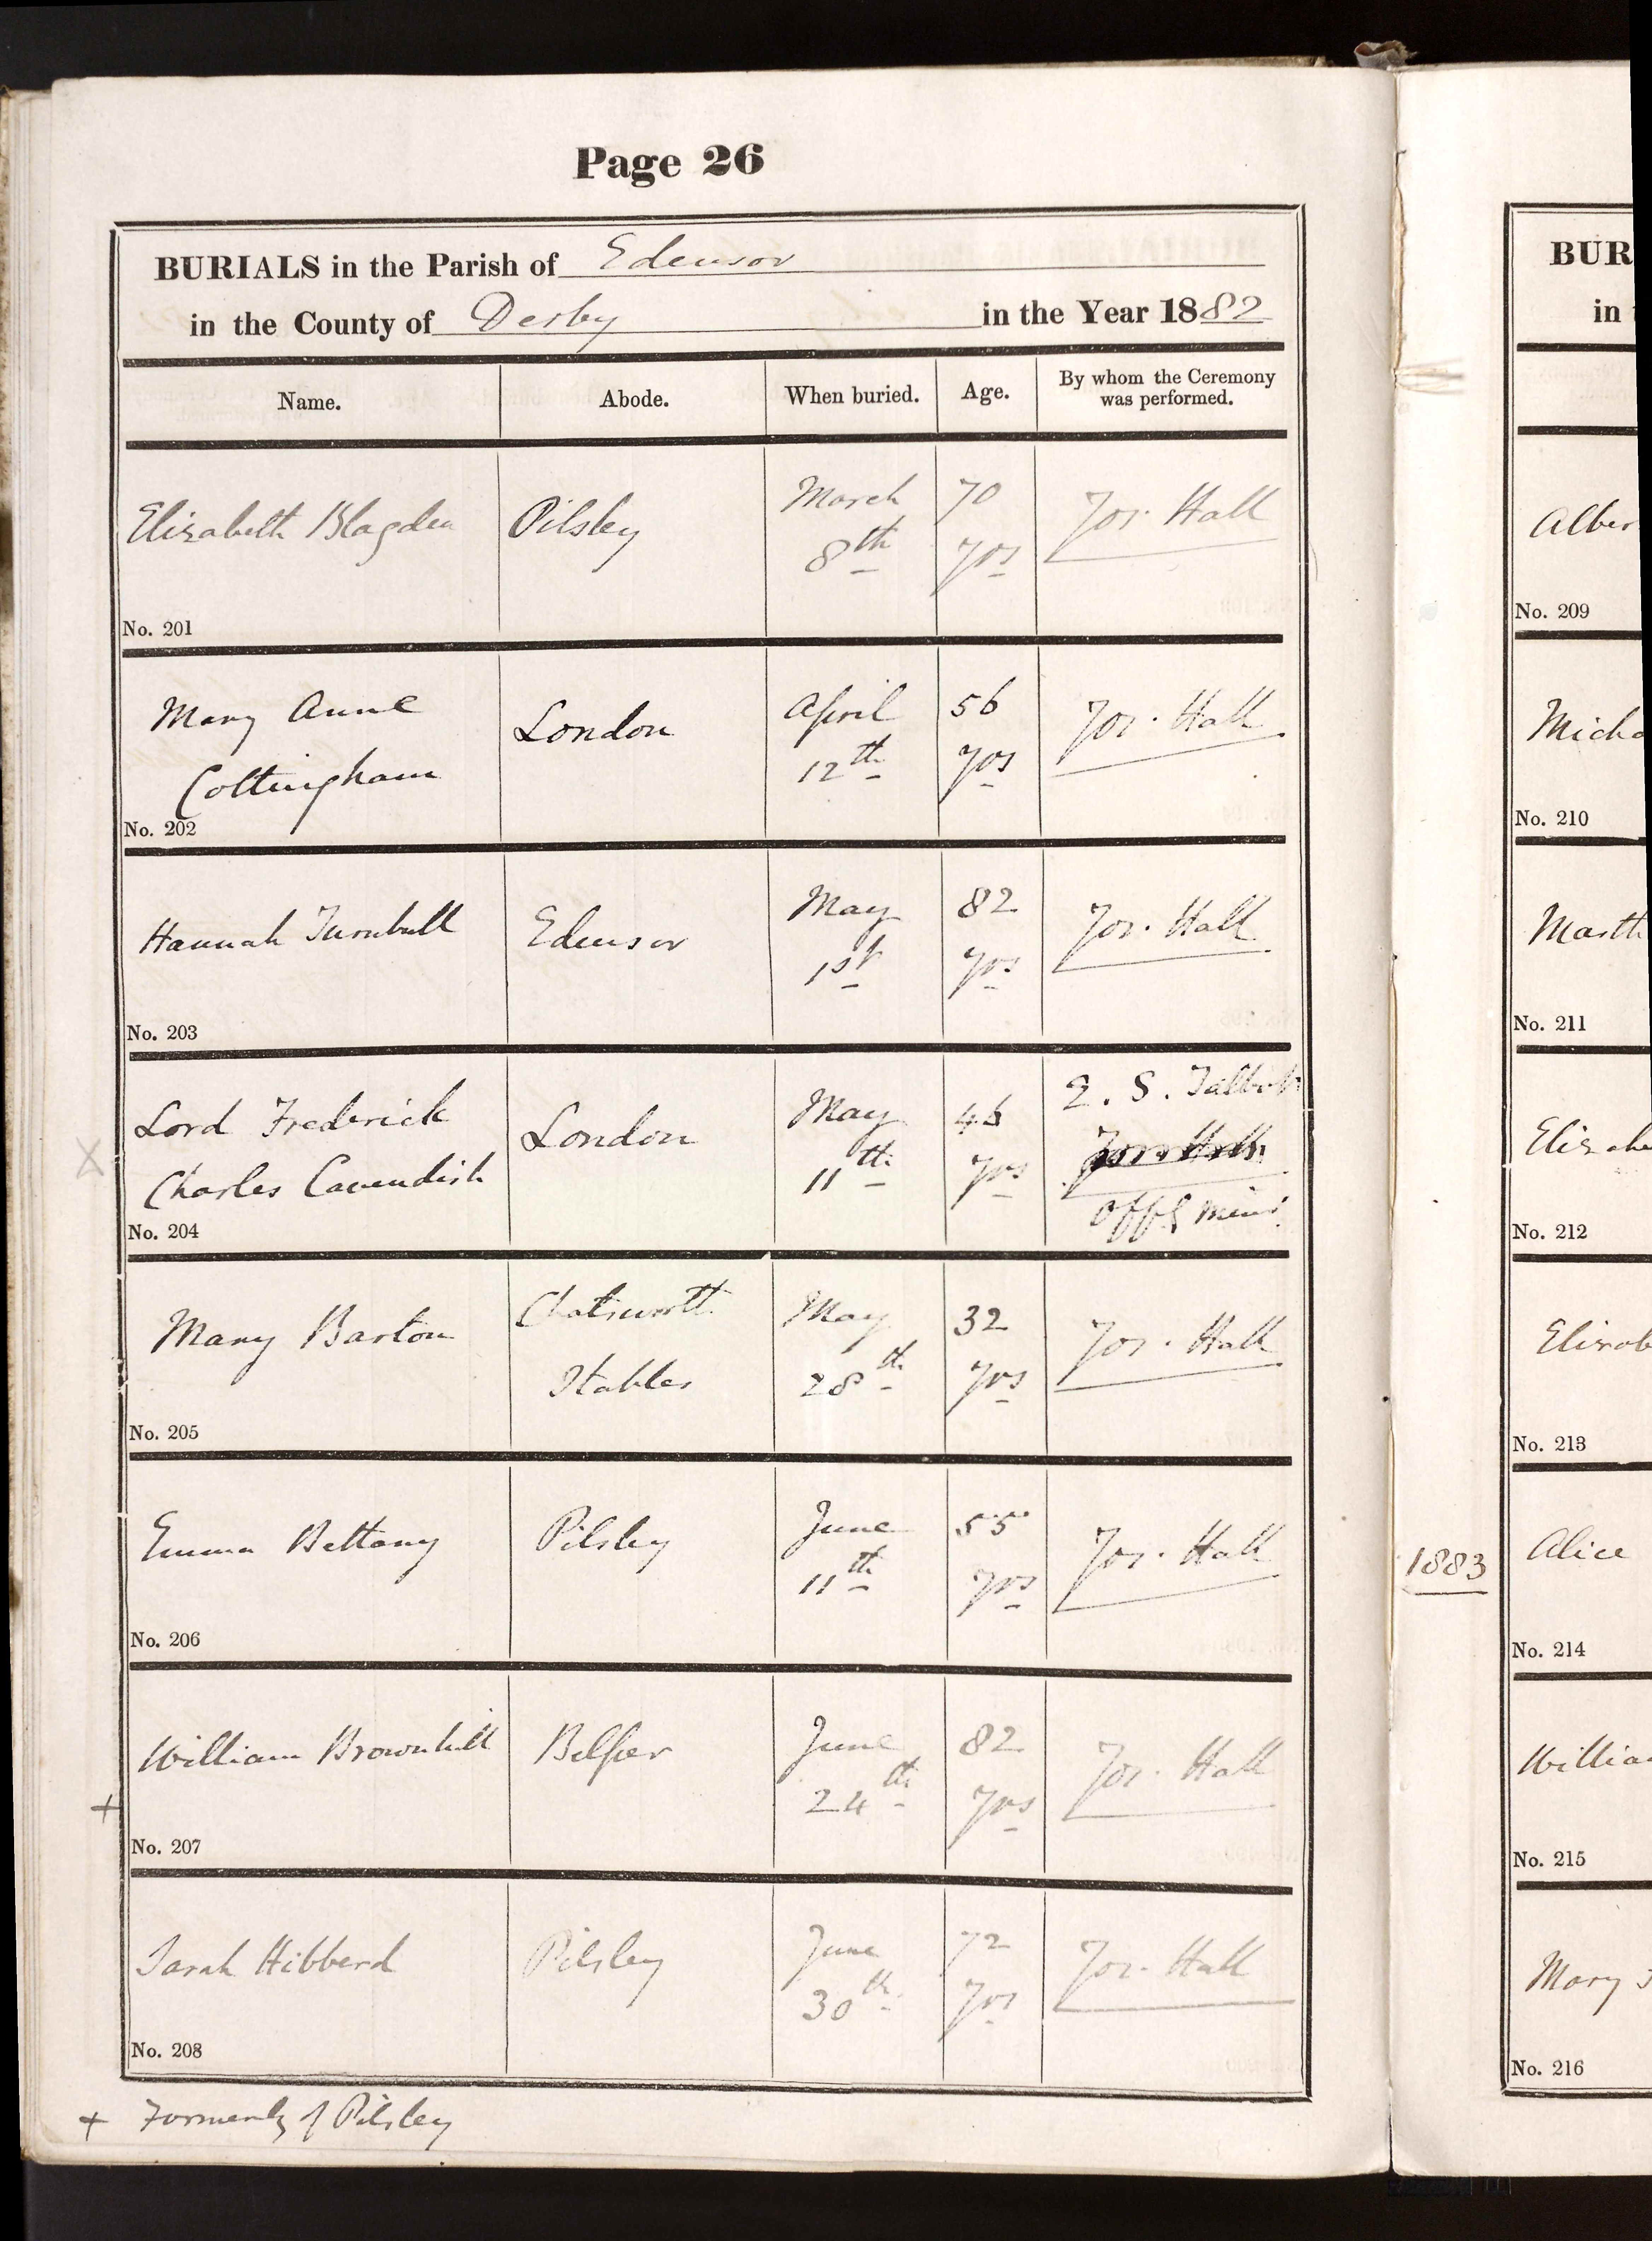 Page 26
BURIALS in the Parish of Edensor
in the County of Derby in the Year 1882
Name. Abode. When buried. Age. By whom the Ceremony was performed.
Elizabeth Blagden Pilsley March 8th 70 yrs Jos. Hall
No. 201
Mary Anne Cottingham London April 12th 56 yrs Jos. Hall
No. 202
Hannah Turnbull Edensor May 1st 82 yrs Jos. Hall
No. 203
Lord Frederick Charles Cavendish London May 11th 46 yrs E. S. Talbot Jos. Hall Offg Minr.
X
No. 204
Mary Barton Chatsworth Stables May 28th 32 yrs Jos. Hall
No. 205
Emma Bettany Pilsley June 11th 55 yrs Jos. Hall
No. 206
William Brownhill Belper June 24th 82 yrs Jos. Hall
+
No. 207
Sarah Hibberd Pilsley June 30th 72 yrs Jos. Hall
No. 208
+ Formerly of Pilsley
BUR
in
Alber
No. 209
Micha
No. 210
Marth
No. 211
No. 212
Elizab
No. 213
1883
Alice
No. 214
Willia
No. 215
Mary
No. 216